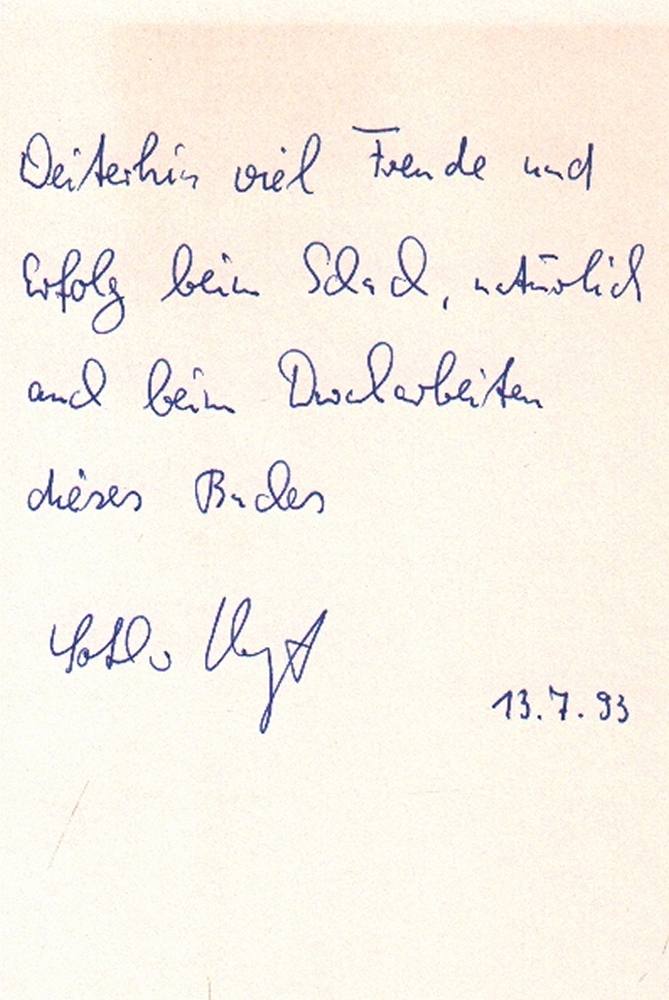 Weiterhin viel Freude und
Erfolg beim Schach, natürlich
auch beim Durcharbeiten
dieses Buches
Lothar Vogt
13.7.93